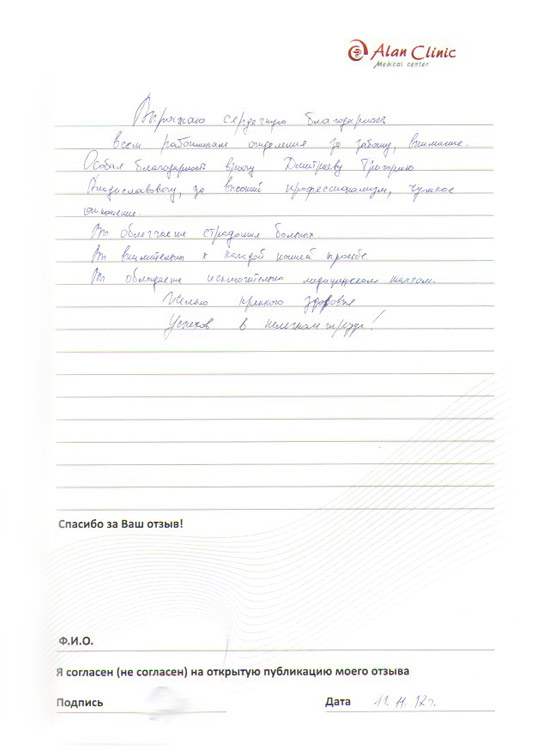 Alan Clinic
Medical center
Выражаю сердечную благодарность
всем работникам отделения за заботу, внимание.
Особая благодарность врачу Дмитриеву Григорию
за высокий профессионализм, чуткое
отношение.
Вы облегчаете страдания больных.
Вы внимательны к каждой нашей просьбе
Вы обладаете исключительно медицинским тактом.
Желаю крепкого здоровья
Успехов в нелегком труде!
Спасибо за Ваш отзыв!
Ф.И.О.
Я согласен (не согласен) на открытую публикацию моего отзыва
Подпись Дата 11.11.17г.